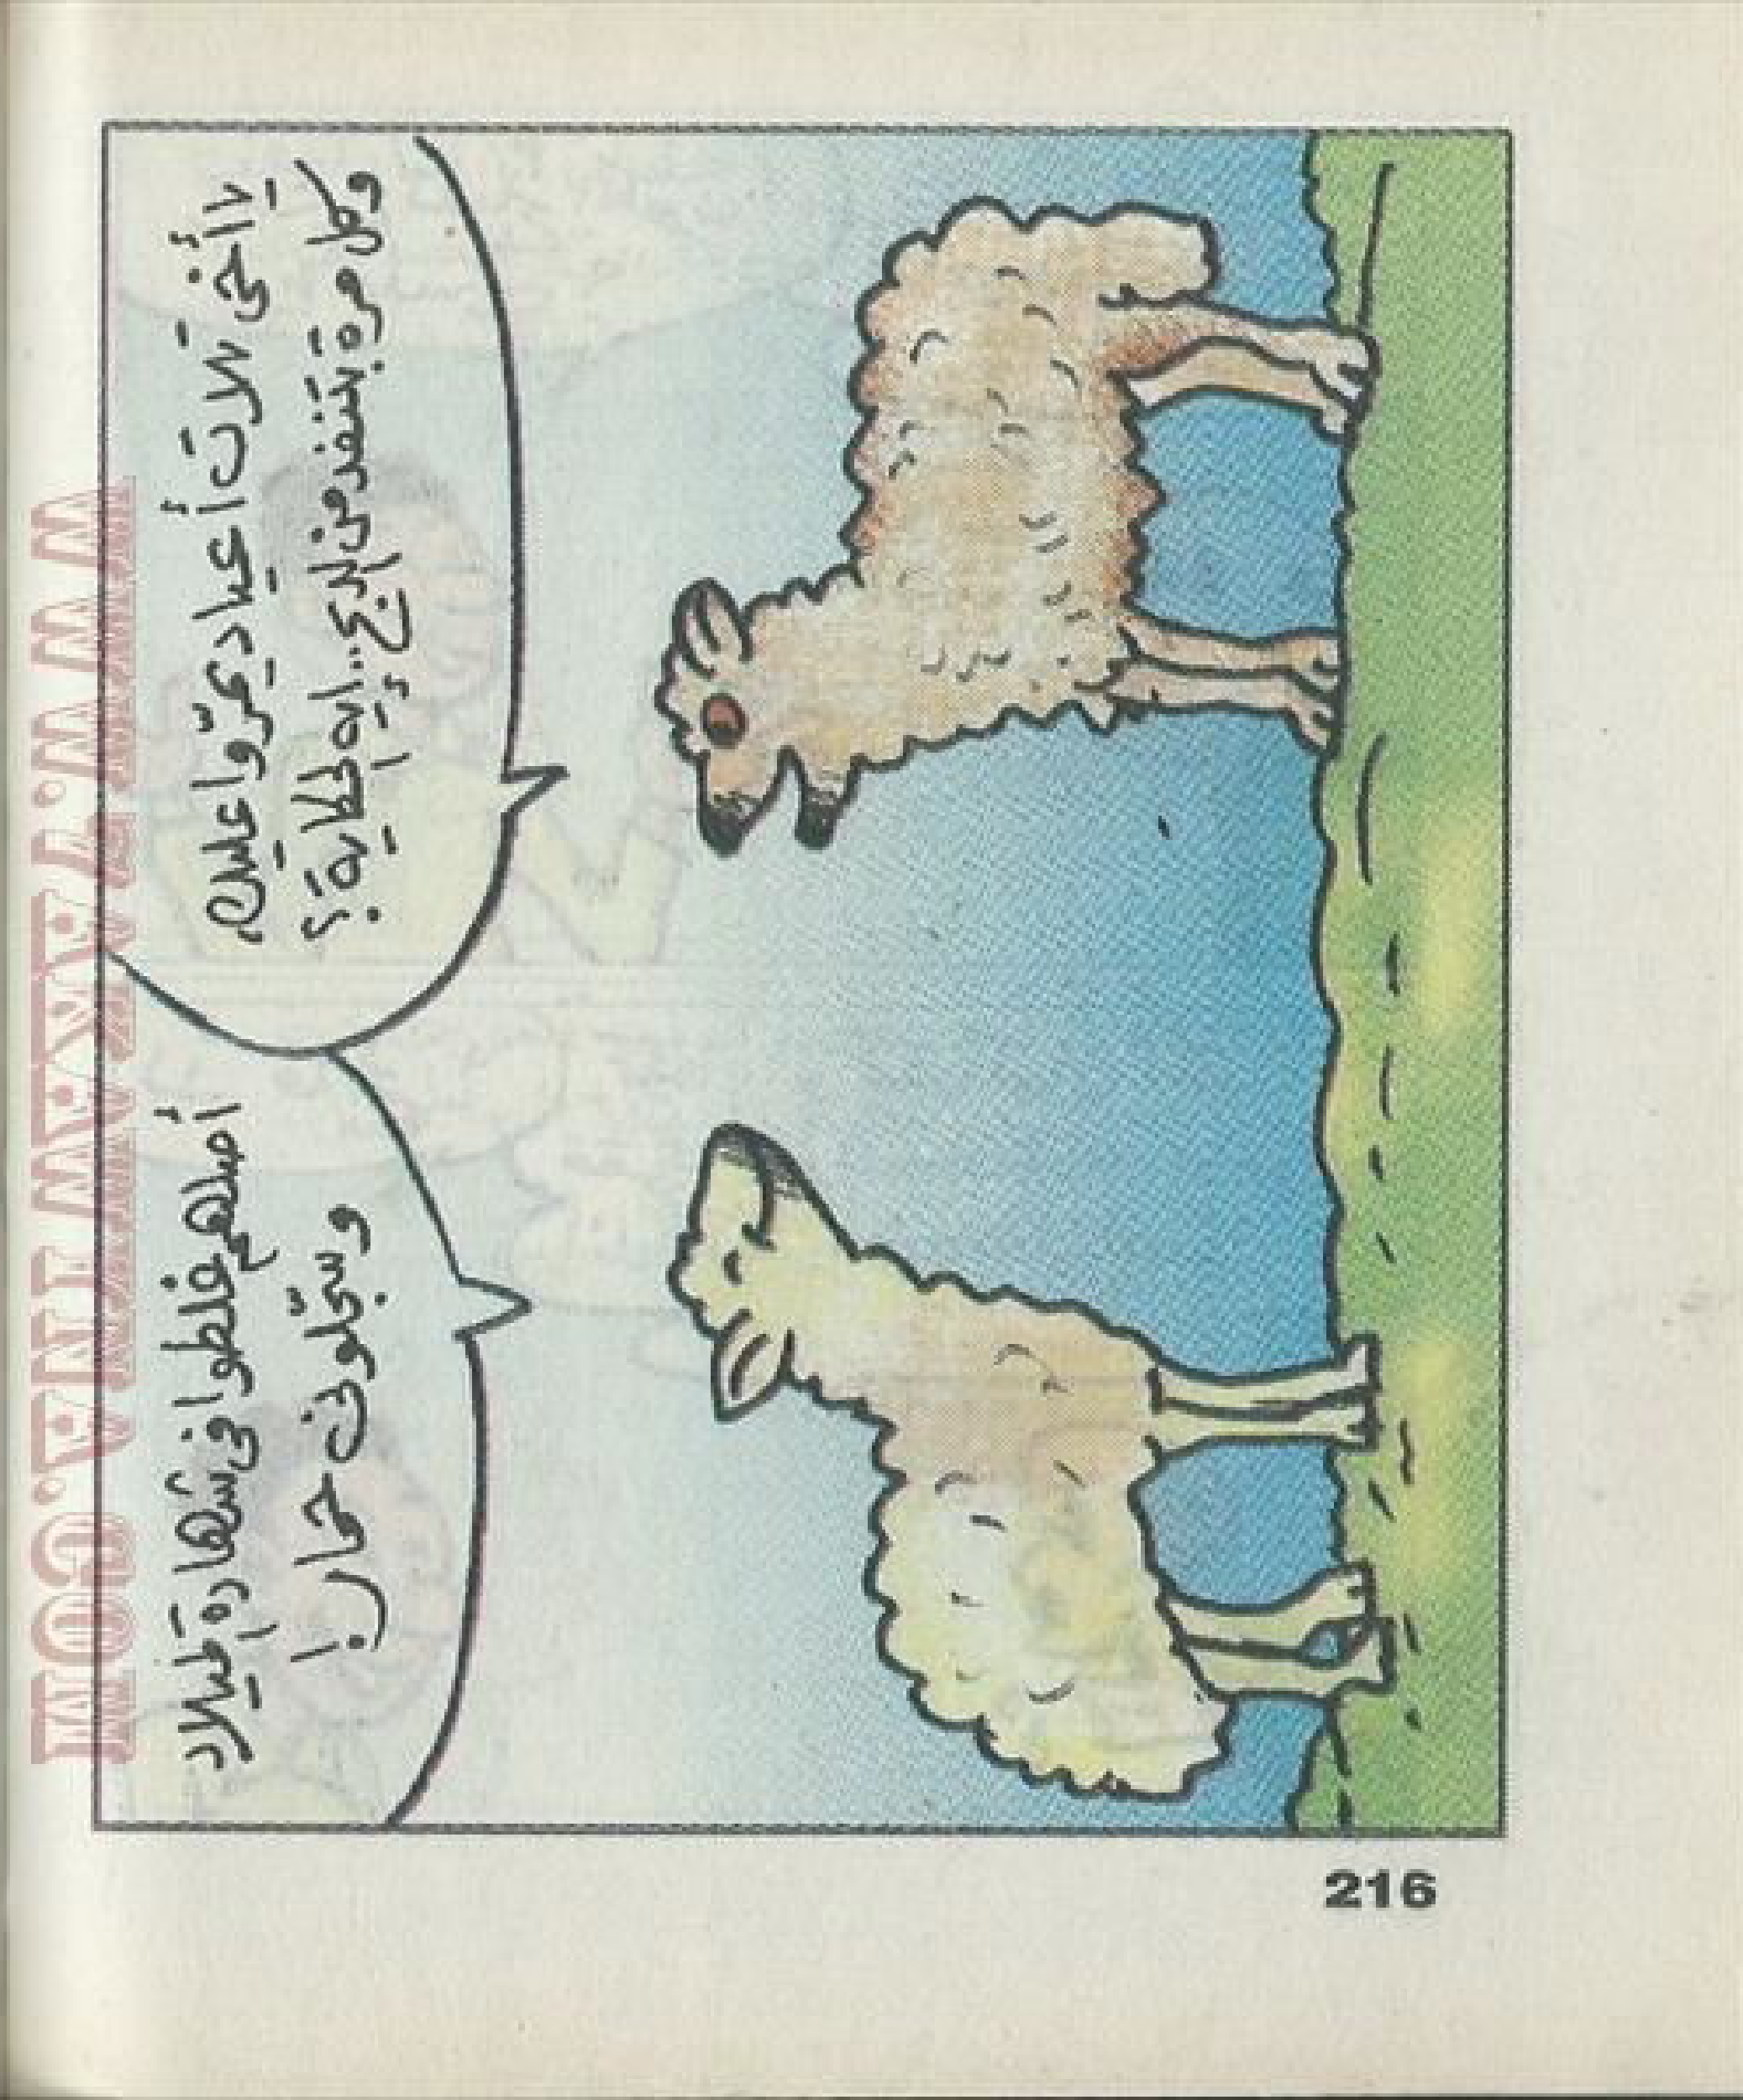 يا أخى تلات أعياد يمرّوا عليك
وكل مرة بتنفد من الدبح .. ايه الحكاية؟
أصلهم غلطوا فى شهادة الميلاد
وسجّلونى حمار !
WWW.7AKAWENA.COM
216